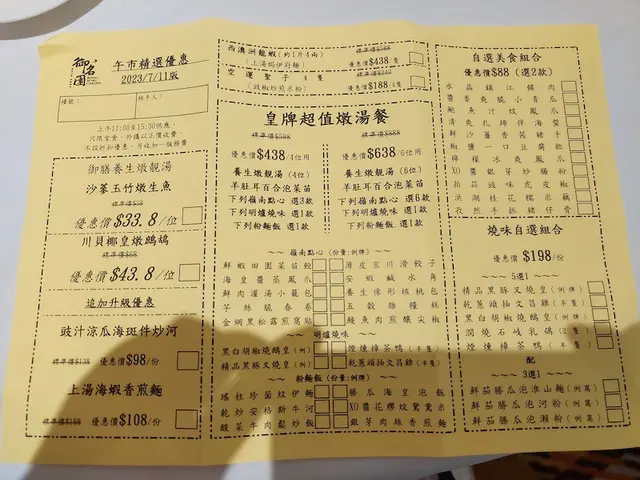 御名園
午市精選優惠
2023/7/11版
檯號：
經手人：
上午11:00至15:30供應。
只限堂食，外攜以正價收費。
不設折扣優惠，另收加一服務費
御膳養生燉靚湯
沙蔘玉竹燉生魚
標準價$58
優惠價$33.8/位
川貝椰皇燉鷓鴣
標準價$68
優惠價$43.8/位
追加升級優惠
豉汁涼瓜海斑件炒河
標準價$138 優惠價$98/份
上湯海蝦香煎麵
標準價$188 優惠價$108/份
西澳洲龍蝦(約1斤4兩) 標準價$588
(上湯焗伊府麵) 優惠價$438/隻
空運聖子4隻
(豉椒炒煎米粉) 優惠價$188/4隻
皇牌超值燉湯餐
標準價$588
優惠價$438/4位用
養生燉靚湯 (4位)
羊肚耳百合泡菜苗
下列嶺南點心 選3款
下列明爐燒味 選1款
下列粉麵飯 選1款
標準價$888
優惠價$638/6位用
養生燉靚湯 (6位)
羊肚耳百合泡菜苗
下列嶺南點心 選6款
下列明爐燒味 選1款
下列粉麵飯 選1款
~~ 嶺南點心 (份量:例牌) ~~
鮮蝦田園菜苗餃
薄皮京川滑餃子
海皇醬蒸鳳爪
安蝦鹹水角
鮮肉灌湯小籠包
養生像形核桃包
芋絲脆春卷
五穀雜糧糕
金網黑松露煎窩貼
鰻魚肉煎釀尖椒
~~ 明爐燒味 ~~
黑白胡椒燒鵝皇 (例)
煙燻樟茶鴨 (半隻)
精品黑豚叉燒皇 (例)
乾蔥頭抽文昌雞 (半隻)
~~ 粉麵飯(份量:例牌) ~~
瑤柱珍菌炆伊麵
勝瓜海皇泡飯
乾炒安格斯牛河
XO醬花膠炆鴛鴦米
酸菜牛肉鬆炒飯
銀芽肉絲香煎麵
自選美食組合
優惠價$88 (選2款)
水晶鎮江餚肉
醬香爽脆小青瓜
鮑魚汁炆鳳爪
清爽札蹄伴海蜇
鮮沙薑香茜豬手
椒鹽一口豆腐粒
檸檬冰爽鳳爪
XO醬銀芽炒腸粉
拍蒜豉味虎皮椒
洪湖桂花糯米藕
孜然手抓豬仔骨
燒味自選組合
優惠價$198/份
~~~~ 5選1 ~~~~
精品黑豚叉燒皇 (例牌)
乾蔥頭抽文昌雞 (半隻)
黑白胡椒燒鵝皇 (例牌)
潤燒石岐乳鴿 (2隻)
煙燻樟茶鴨 (半隻)
配
~~~~ 3選1 ~~~~
鮮茄勝瓜泡淮山麵 (例窩)
鮮茄勝瓜泡河粉 (例窩)
鮮茄勝瓜泡瀨粉 (例窩)